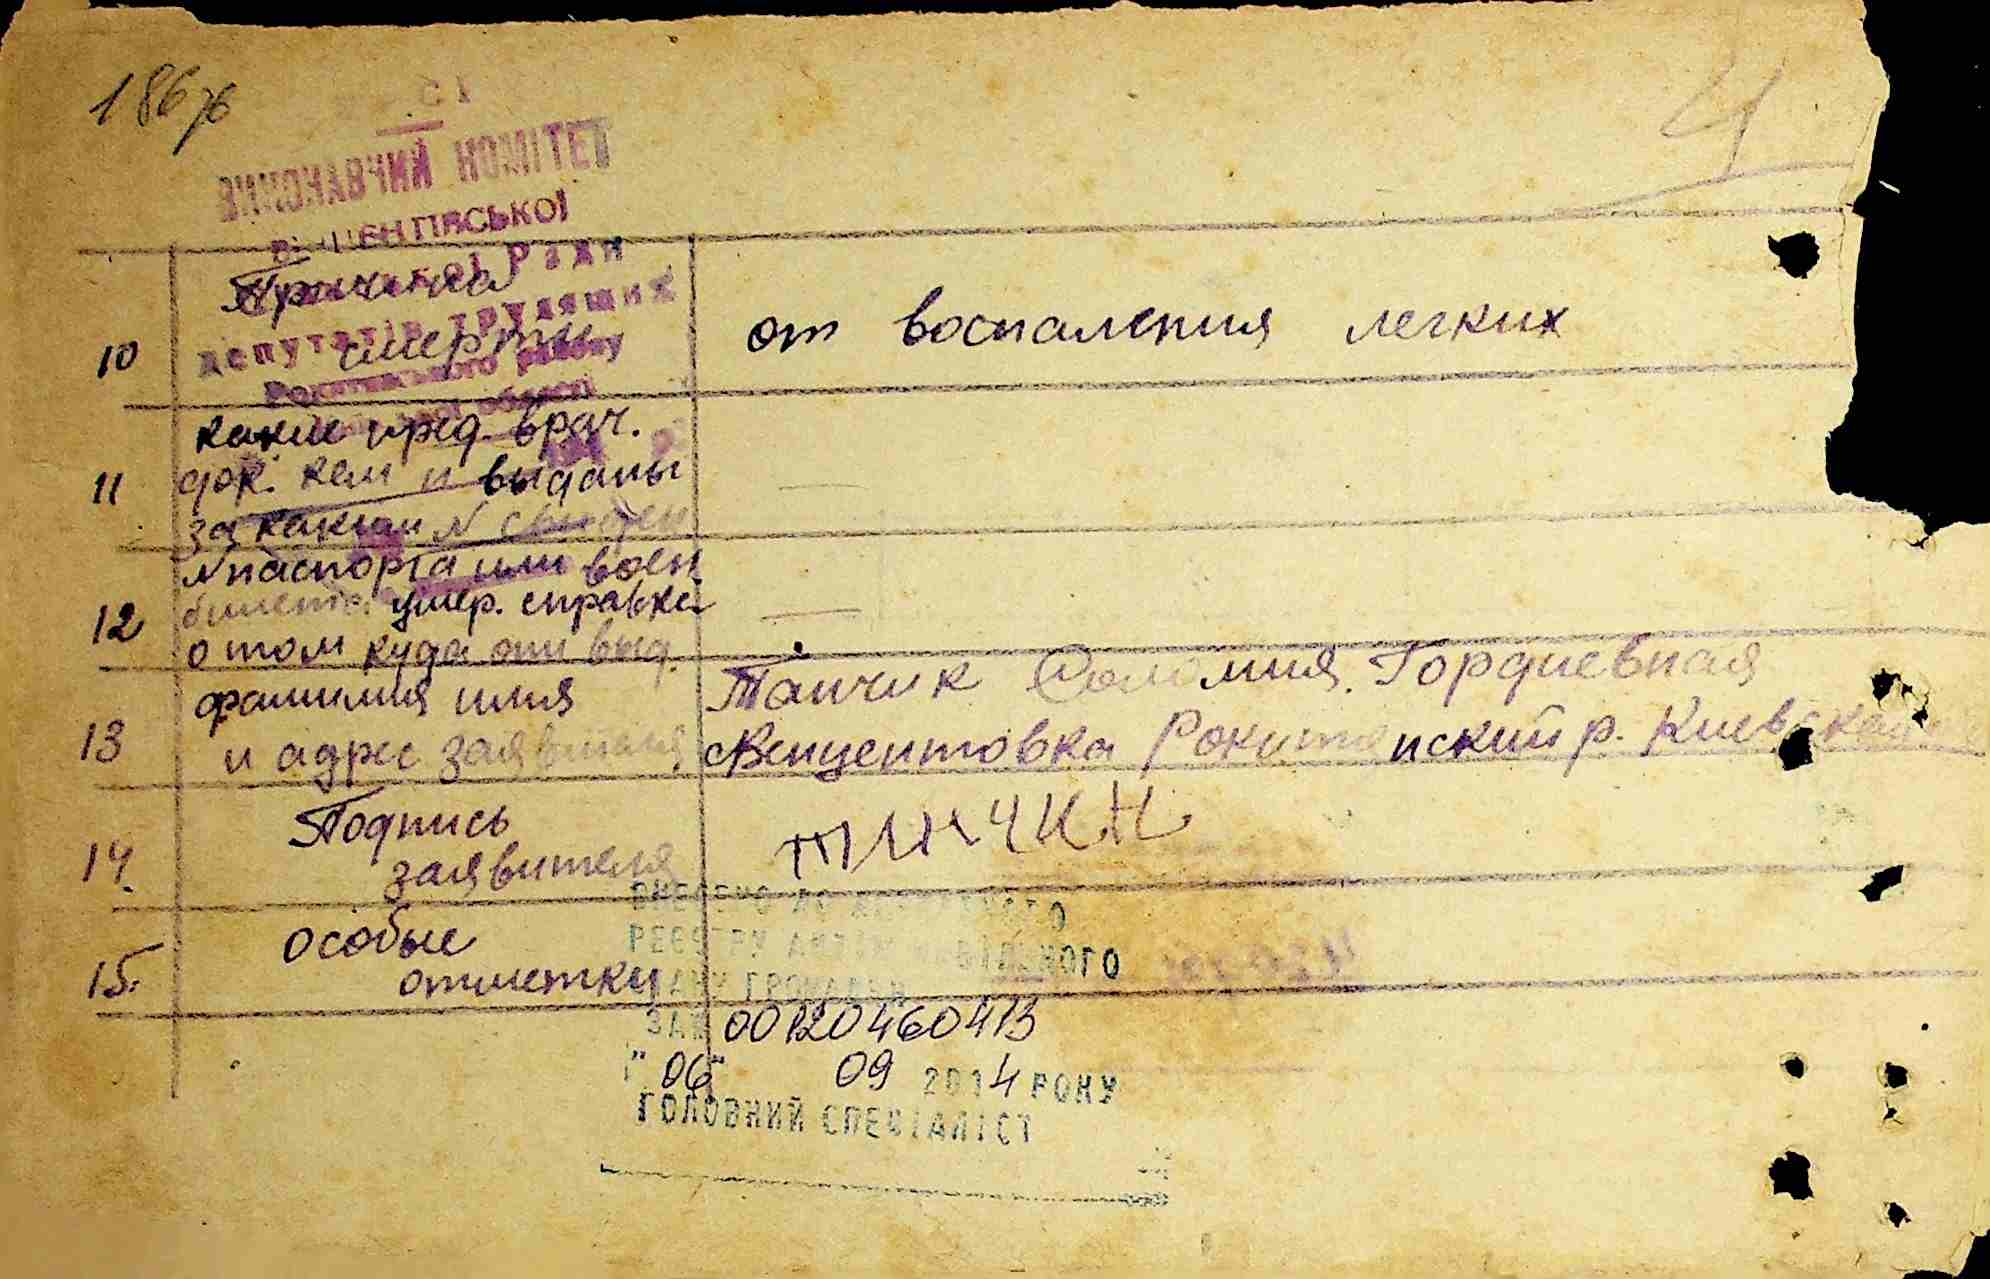 186
ВИКОНАВЧИЙ КОМІТЕТ
Ради
депутатів трудящих
Рокитнянського району
області
10
Причина
смерти
от воспаления легких
11
какие пред. врач.
док. кем и выданы
за каким N свиден
12
N паспорта или воен.
билета умер. справка
о том куда они выд.
13
фамилия имя
и адрес заявителя
Танчик Соломия Гордиевная
с Венцентовка Рокитянский р. Киевская
14.
Подпись
заявителя
15.
особые
отметки
ВНЕСЕНО ДО ДЕРЖАВНОГО
РЕЄСТРУ АКТІВ ЦИВІЛЬНОГО
СТАНУ ГРОМАДЯН
ЗА № 00120460413
"06" 09 2014 РОКУ
ГОЛОВНИЙ СПЕЦІАЛІСТ